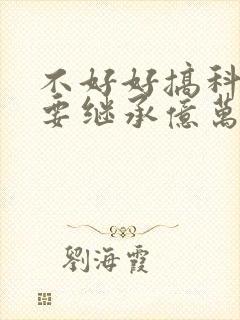 不好好搞科
要继承億萬
劉海霞